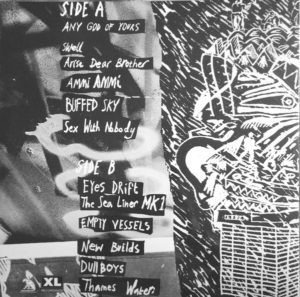 SIDE A
ANY GOD OF YOURS
Swell
Arise Dear Brother
AMMi AMMi
BUFFED SKY
Sex With Nobody
SIDE B
EYES DRIFT
The Sea Liner MK1
EMPTY VESSELS
New Builds
Dull BOYS
Thames Water
XL